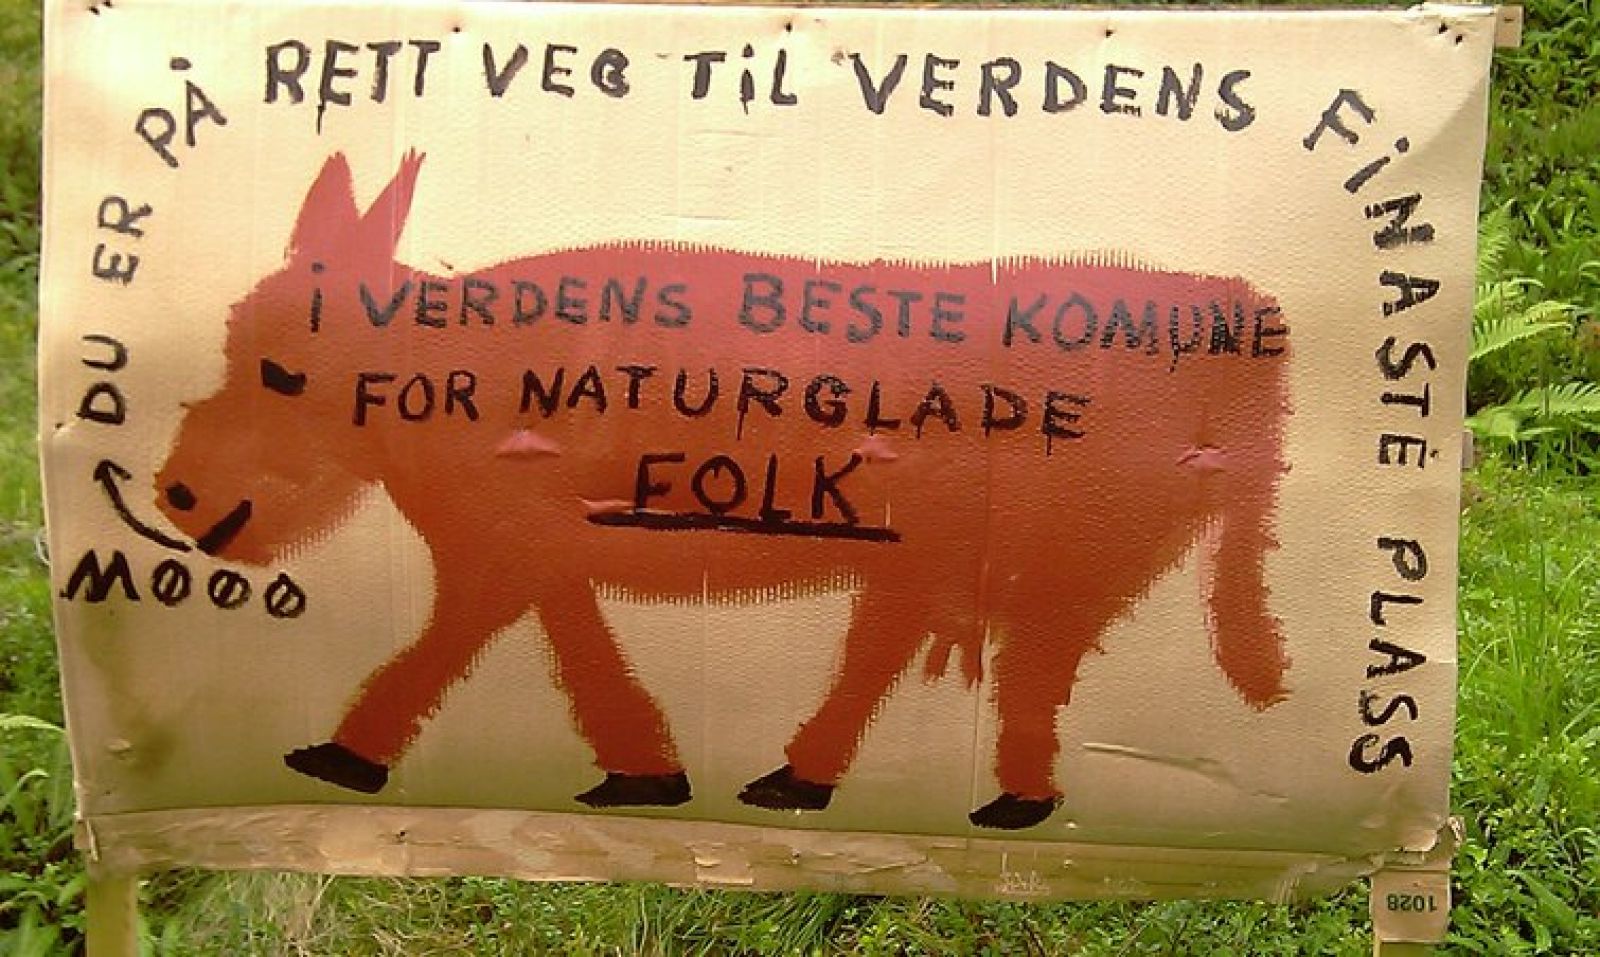 DU ER PÅ RETT VEG TiL VERDENS FiNASTE PLASS
i VERDENS BESTE KOMUNE
FOR NATURGLADE
FOLK
MØØØ
1028